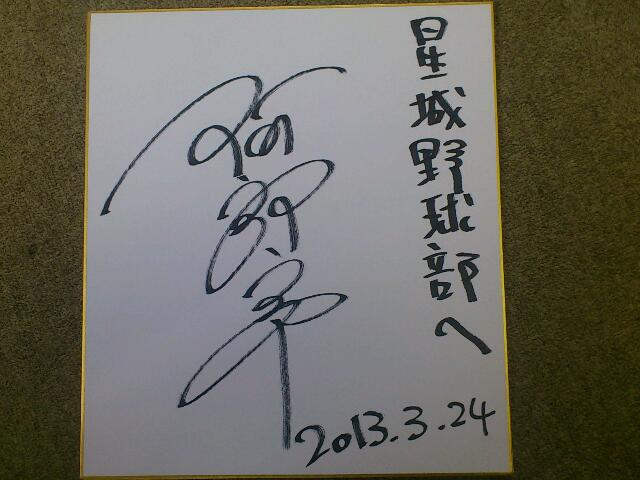 星城野球部へ
2013.3.24